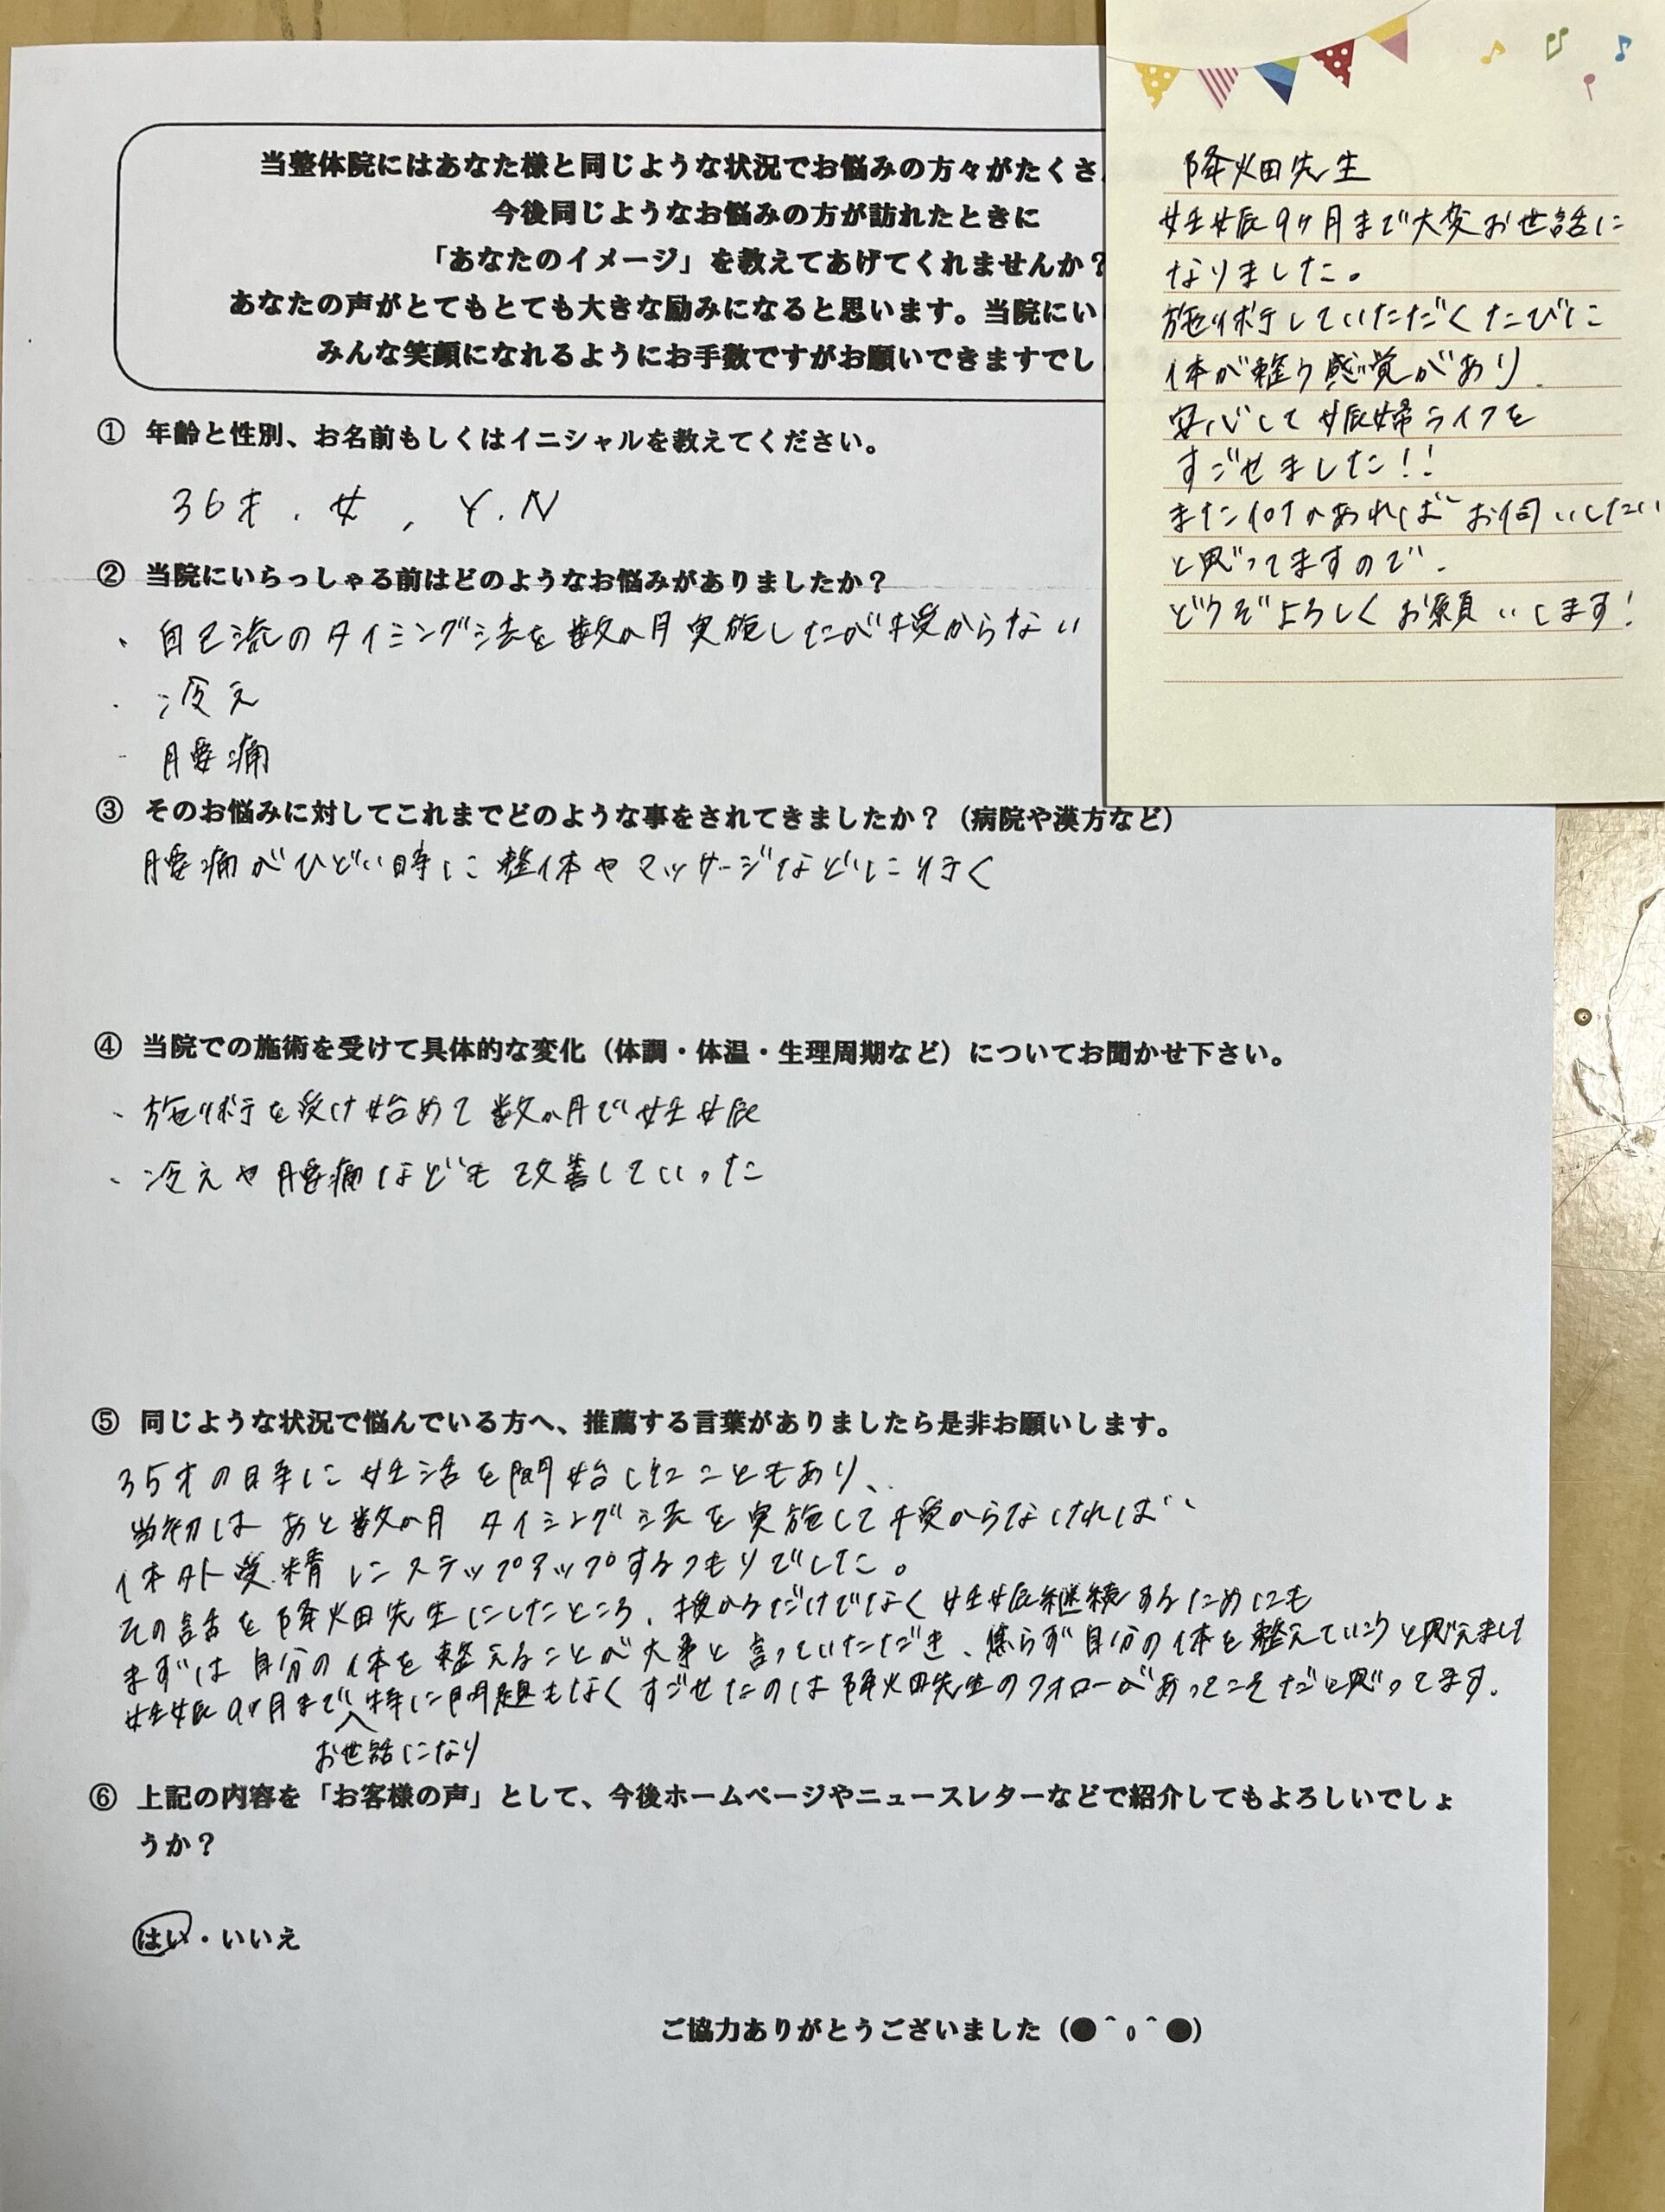 当整体院にはあなた様と同じような状況でお悩みの方々がたくさ
今後同じようなお悩みの方が訪れたときに
「あなたのイメージ」を教えてあげてくれませんか？
あなたの声がとてもとても大きな励みになると思います。当院にい
みんな笑顔になれるようにお手数ですがお願いできますでし
① 年齢と性別、お名前もしくはイニシャルを教えてください。
36才、女、Y.N
② 当院にいらっしゃる前はどのようなお悩みがありましたか？
・自己流のタイミング法を数か月実施したが授からない
・冷え
・腰痛
③ そのお悩みに対してこれまでどのような事をされてきましたか？（病院や漢方など）
腰痛がひどい時に整体やマッサージなどに行く
④ 当院での施術を受けて具体的な変化（体調・体温・生理周期など）についてお聞かせ下さい。
・施術を受け始めて数か月で妊娠
・冷えや腰痛なども改善していった
⑤ 同じような状況で悩んでいる方へ、推薦する言葉がありましたら是非お願いします。
35才の時に妊活を開始したこともあり、
当初はあと数か月タイミング法を実施して授からなければ
体外受精にステップアップするつもりでした。
その話を降畑先生にしたところ、授かるだけでなく妊娠継続するためにも
まずは自分の体を整えることが大事と言っていただき、焦らず自分の体を整えていこうと思えました
妊娠9ヶ月まで特に問題もなくすごせたのは降畑先生のフォローがあってこそだと思ってます。
お世話になり
⑥ 上記の内容を「お客様の声」として、今後ホームページやニュースレターなどで紹介してもよろしいでしょ
うか？
はい・いいえ
ご協力ありがとうございました（●＾o＾●）
降畑先生
妊娠9ヶ月まで大変お世話に
なりました。
施術していただくたびに
体が整う感覚があり、
安心して妊婦ライフを
すごせました！！
また何かあればお伺いしたい
と思ってますので、
どうぞよろしくお願いします！